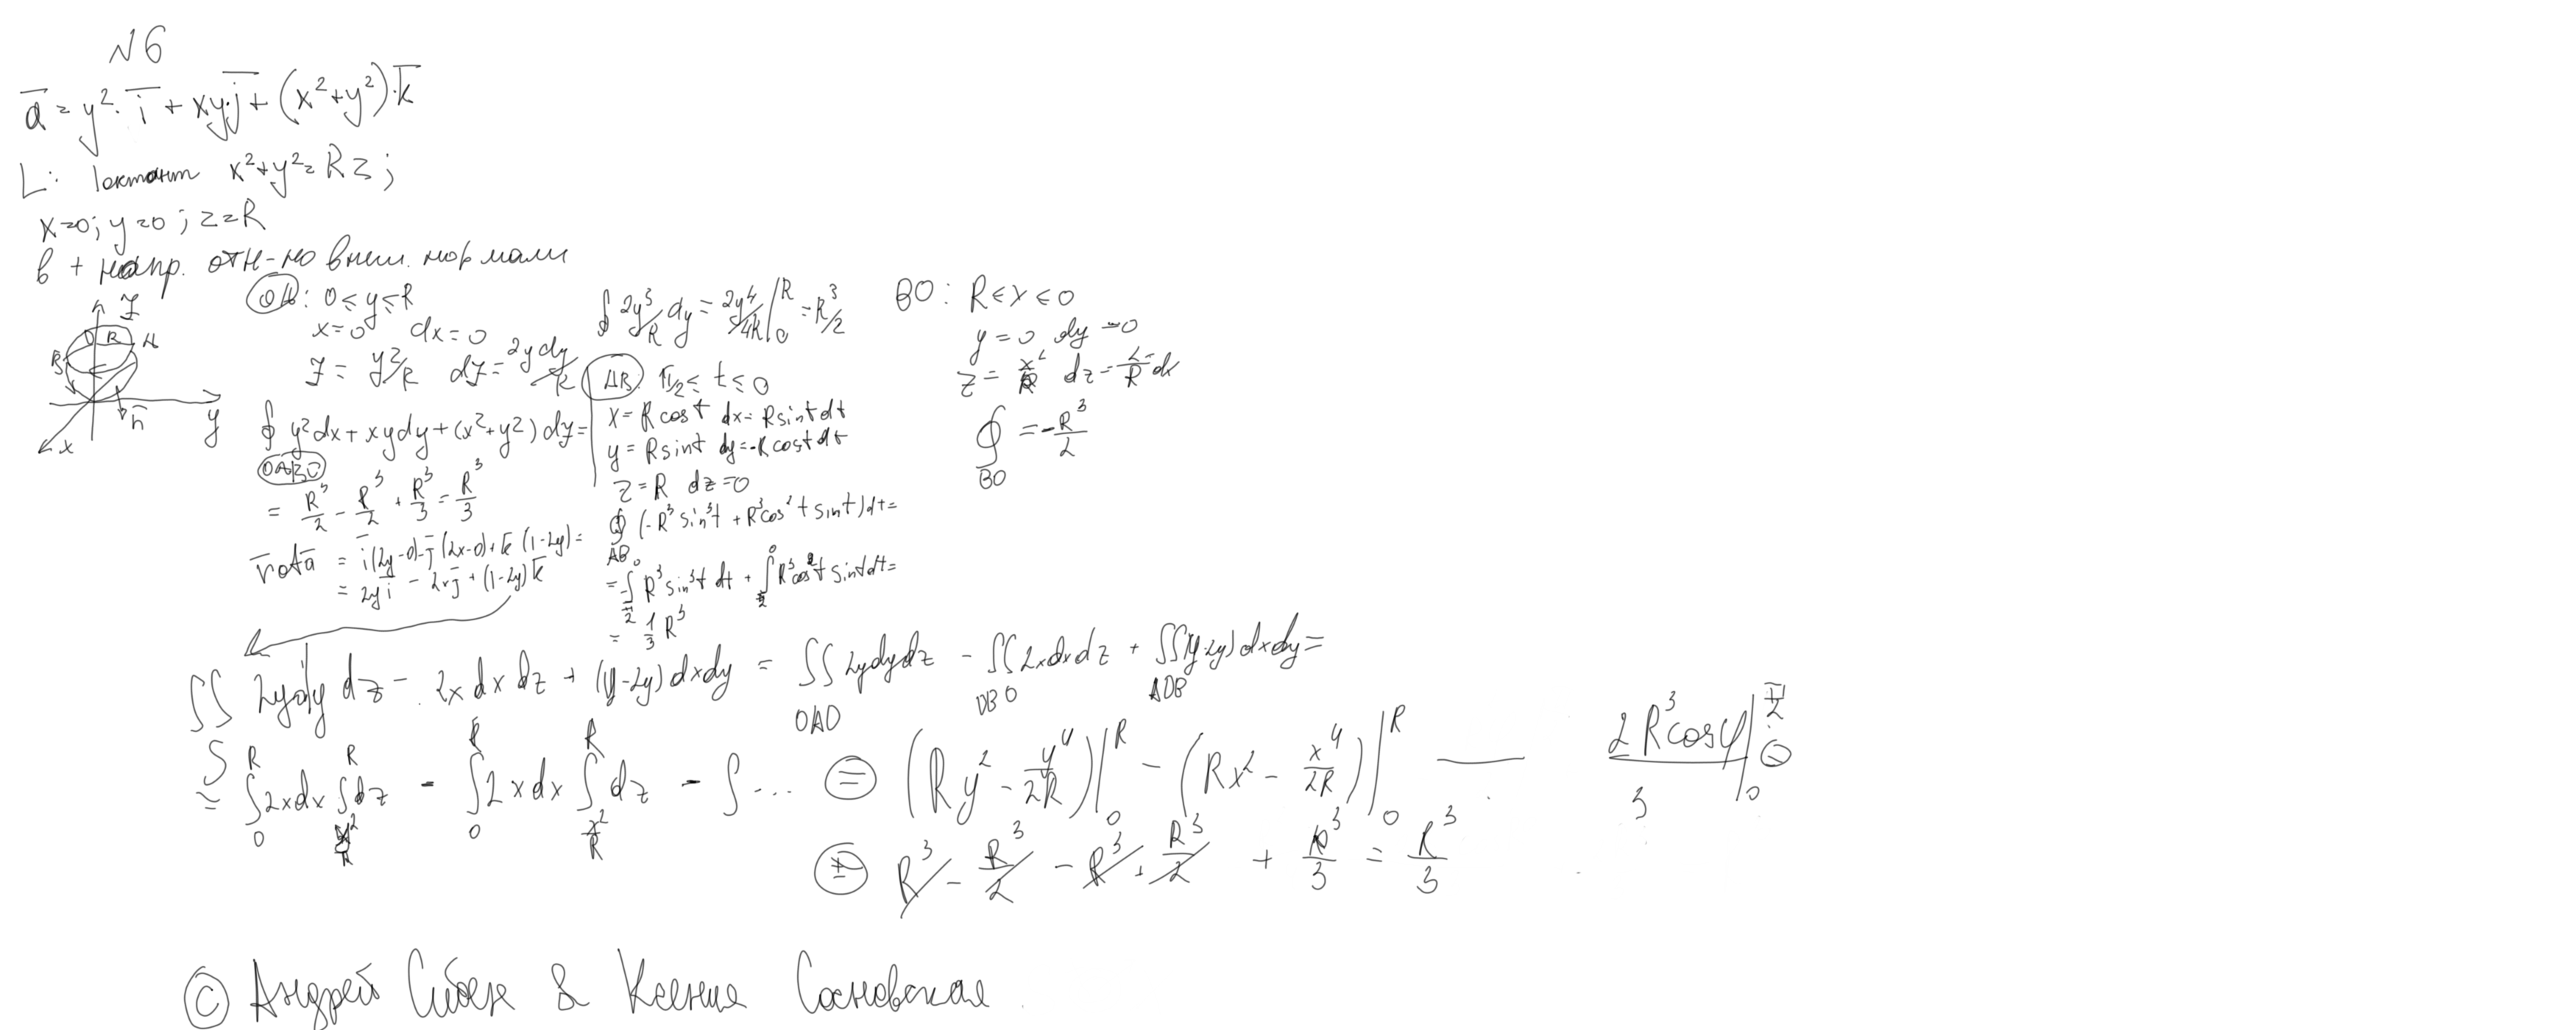 №6
a̅ = y²·i̅ + xy·j̅ + (x²+y²)·k̅
L: 1октант x²+y²=Rz;
x=0; y=0; z=R
в + напр. отн-но внеш. нормали
z
B D R A
y
x
n̅
OA: 0≤y≤R
x=0 dx=0
z = y²/R dz = 2ydy/R
∮ y²dx+xydy+(x²+y²)dz =
OABO
= R³/2 - R³/2 + R³/3 = R³/3
rota̅ = i̅(2y-0)-j̅(2x-0)+k̅(1-2y)=
= 2yi̅ - 2xj̅ + (1-2y)k̅
∮ 2y³/R dy = 2y⁴/4R |₀ᴿ = R³/2
AB: π/2 ≤ t ≤ 0
x=Rcost dx=Rsintdt
y=Rsint dy=-Rcostdt
z=R dz=0
∮ (-R³sin³t + R³cos²t sint)dt=
AB
= ∫ R³sin³t dt + ∫ R³cos²t sintdt=
= 1/3 R³
BO: R≤x≤0
y=0 dy=0
z = x²/R dz =
∮ = -R³/2
BO
∬ 2ydy dz - 2x dx dz + (y-2y)dxdy = ∬ 2ydydz - ∬ 2xdxdz + ∬(y-2y)dxdy=
S OAD DBO ADB
= ∫₀ᴿ 2xdx ∫ dz - ∫₀ᴿ 2xdx ∫ dz - ∫... = (Ry² - y⁴/2R)|₀ᴿ - (Rx² - x⁴/2R)|₀ᴿ — 2R³cosφ/3 |₀
R³ - R³/2 - R³ + R³/2 + R³/3 = R³/3
© Андрей & Ксения Сосновская